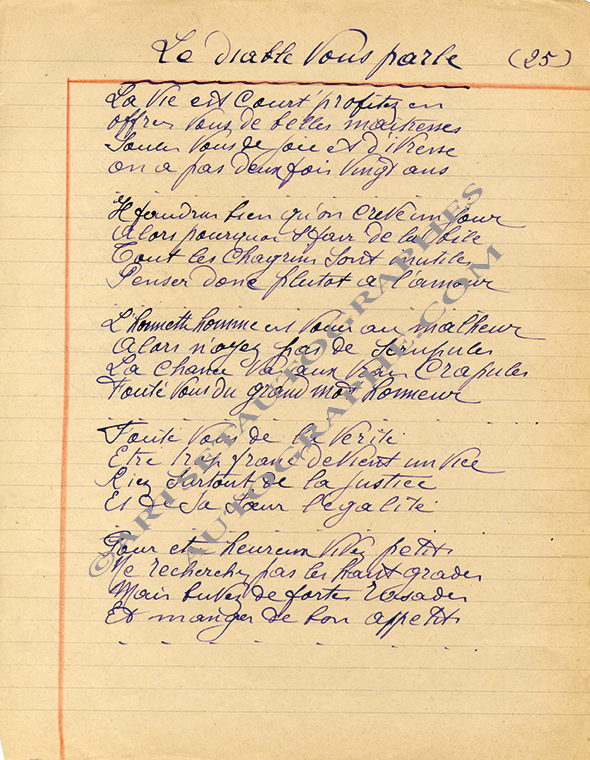 Le diable Vous parle (25)
La Vie est Court' profitez en
offrez Vous de belles maitresses
Soulez Vous de joie et d'ivresse
on a pas deux fois vingt ans
Il faudras bien qu'on creve un jour
Alors pourquoi s'fair de la bile
Tout les Chagrins sont inutiles
Penser donc plutot a l'amour
L'honnette homme est Vouer au malheur
Alors n'ayez pas de Scrupules
La Chance Va aux Vrais Crapules
Fouté Vous du grand mot honneur
Fouté Vous de la Verité
Etre trop franc devient un Vice
Riez Surtout de la justice
Et de Sa Sœur l'egalité
Pour etr heureux Vivez petits
Ne recherchez pas les haut grades
Mais buvez de fortes rasades
Et manger de bon appetits
©ARTSETAUTOGRAPHES
AUTOGRAPHE.COM